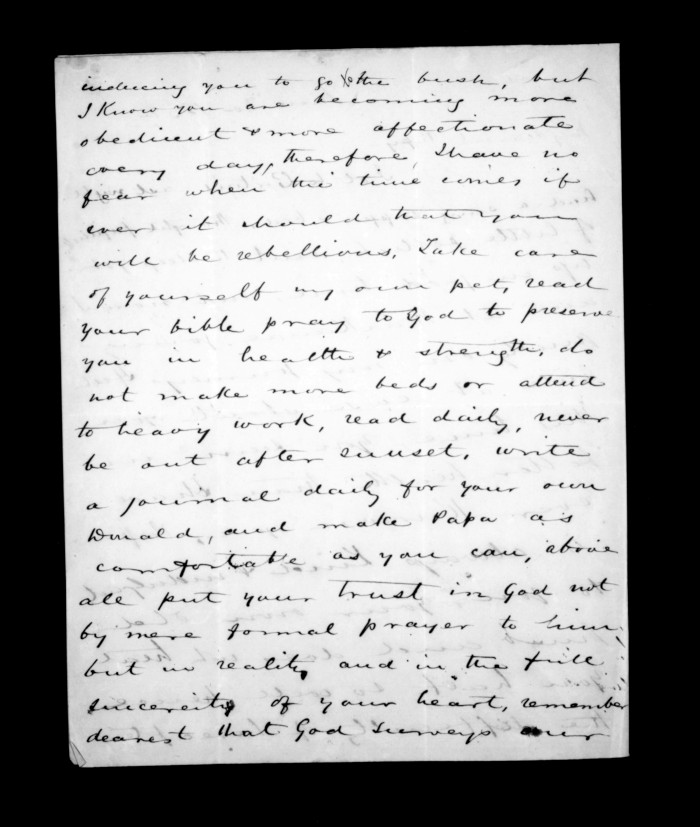 inducing you to go to the bush, but
I know you are becoming more
obedient & more affectionate
every day, therefore, I have no
fear when the time comes if
ever it should that you
will be rebellious. Take care
of yourself my own pet, read
your bible pray to God to preserve
you in health & strength, do
not make more beds or attend
to heavy work, read daily, never
be out after sunset, write
a journal daily for your own
Donald, and make Papa as
comfortable as you can, above
all put your trust in God not
by mere formal prayer to him
but in reality and in the full
sincerity of your heart, remember
dearest that God surveys our